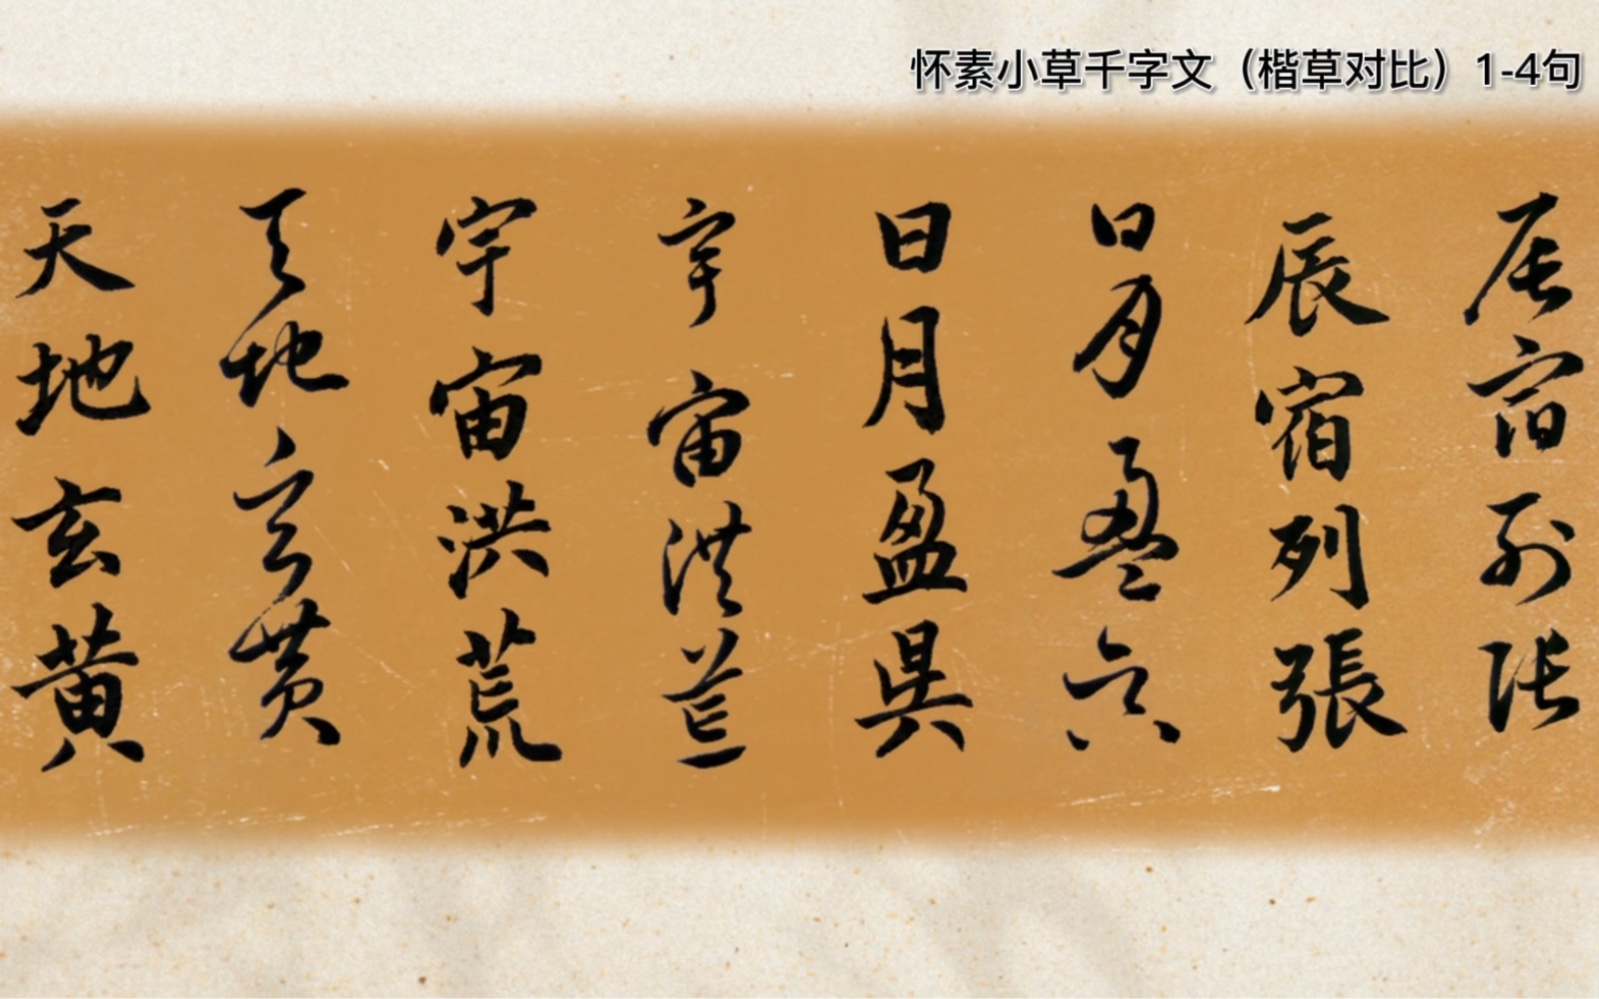 怀素小草千字文（楷草对比）1-4句
天地玄黄
天地玄黄
宇宙洪荒
宇宙洪荒
日月盈昃
日月盈昃
辰宿列張
辰宿列張